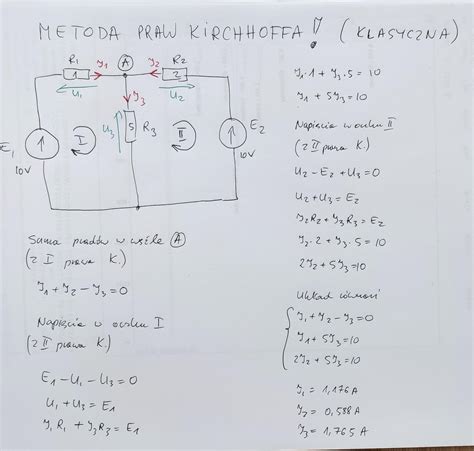 METODA PRAW KIRCHHOFFA! (KLASYCZNA)
R1 I1 A I2 R2
1 2
U1 U2
I3
U3 5 R3
E1 I II E2
10V 10V
Suma prądów w węźle A
(z I prawa K.)
I1 + I2 - I3 = 0
Napięcia w oczku I
(z II prawa K.)
E1 - U1 - U3 = 0
U1 + U3 = E1
I1R1 + I3R3 = E1
I1·1 + I3·5 = 10
I1 + 5I3 = 10
Napięcia w oczku II
(z II prawa K.)
U2 - E2 + U3 = 0
U2 + U3 = E2
I2R2 + I3R3 = E2
I2·2 + I3·5 = 10
2I2 + 5I3 = 10
Układ równań
I1 + I2 - I3 = 0
I1 + 5I3 = 10
2I2 + 5I3 = 10
I1 = 1,176 A
I2 = 0,588 A
I3 = 1,765 A